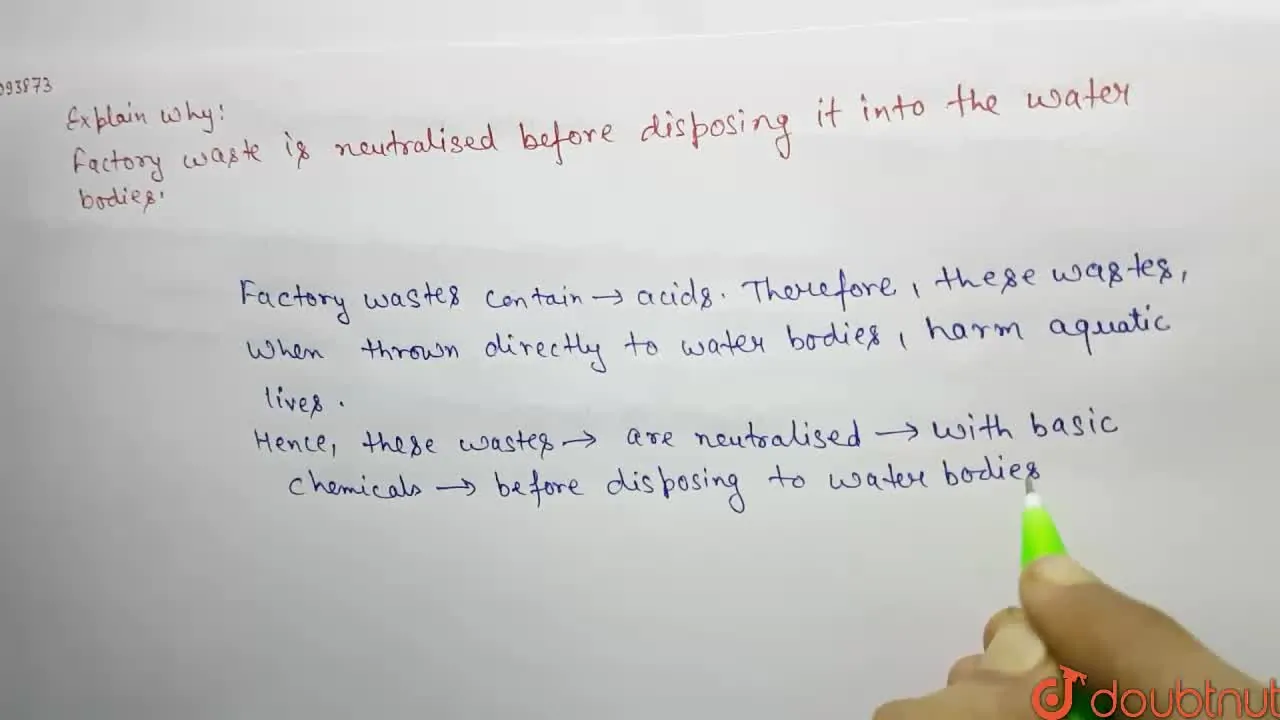 093873
Explain why:
Factory waste is neutralised before disposing it into the water
bodies.
Factory wastes contain → acids. Therefore, these wastes,
when thrown directly to water bodies, harm aquatic
lives.
Hence, these wastes → are neutralised → with basic
chemicals → before disposing to water bodies
doubtnut